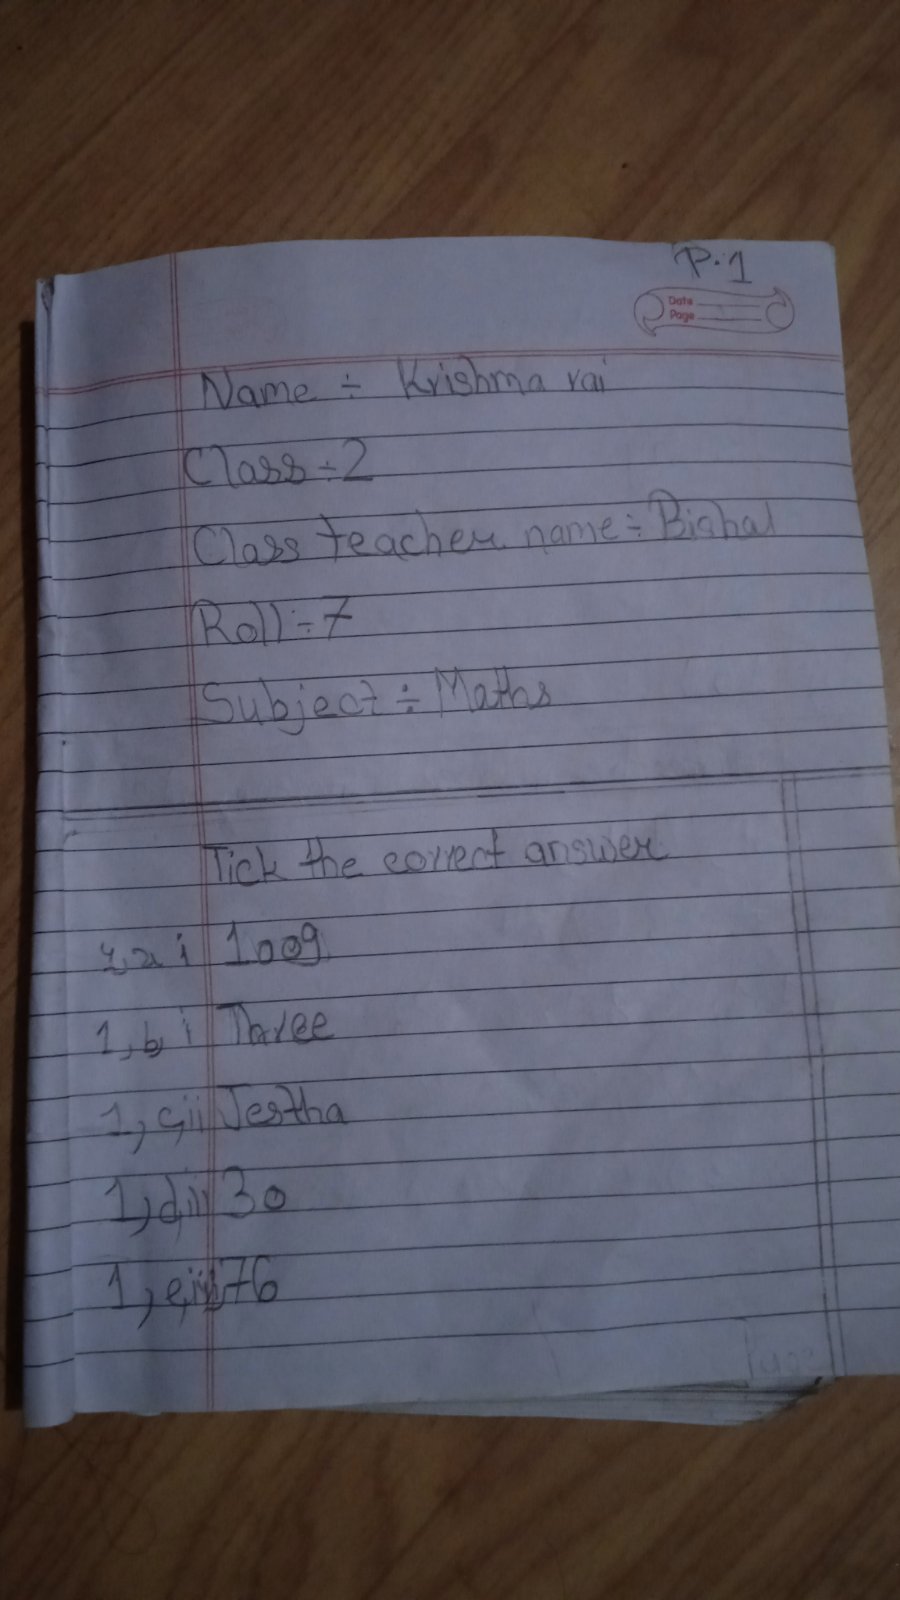 P.1
Date
Page
Name ÷ Krishma rai
Class ÷ 2
Class teacher name ÷ Bishal
Roll ÷ 7
Subject ÷ Maths
Tick the correct answer
1, a i 1009
1, b, i Three
1, c, ii Jestha
1, d, ii 30
1, e, iii 76